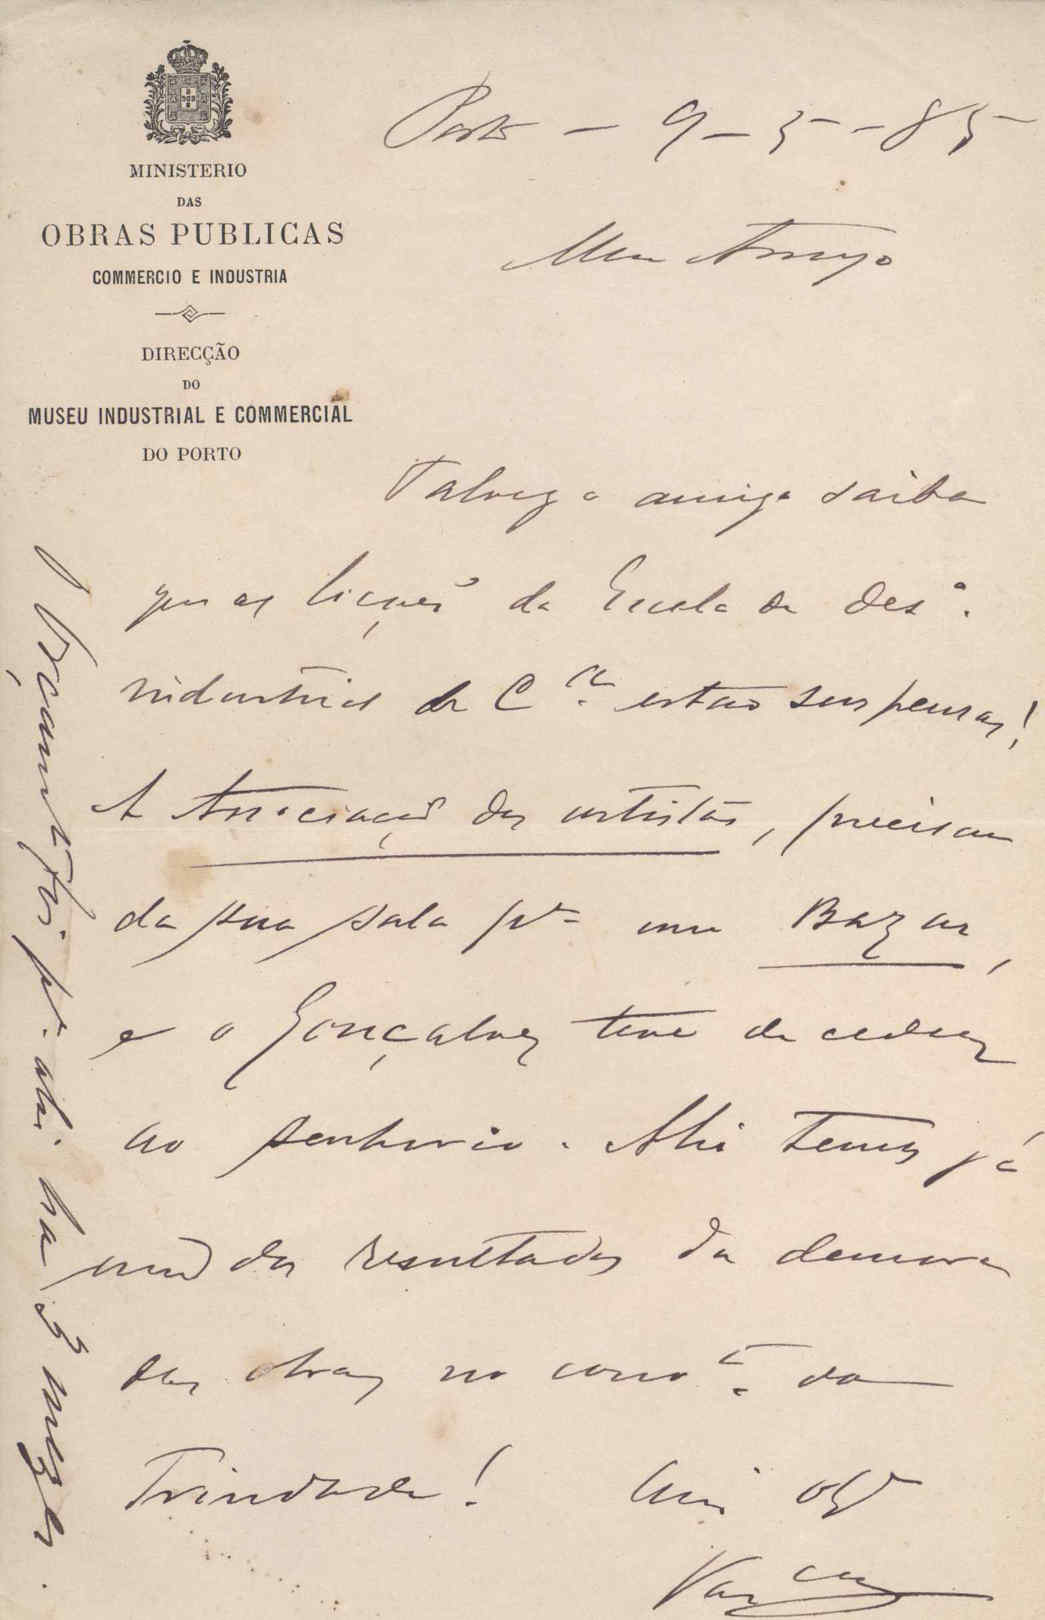 MINISTERIO
DAS
OBRAS PUBLICAS
COMMERCIO E INDUSTRIA
DIRECÇÃO
DO
MUSEU INDUSTRIAL E COMMERCIAL
DO PORTO
Porto - 9 - 5 - 85
Meu Arroyo
Talvez o amigo saiba
que as lições da Escola de des.º
industrial de C.ª estão suspensas!
A Associação dos artistas, precisou
da sua sala p.ª um Bazar,
e o Gonçalves teve de ceder
ao senhorio. Ahi temos já
um dos resultados da demora
das obras no conv.to da
Trindade!
Am.º obg.º
Vas.cos
O Orçamento foi p.ª ahi ha 3 mezes.